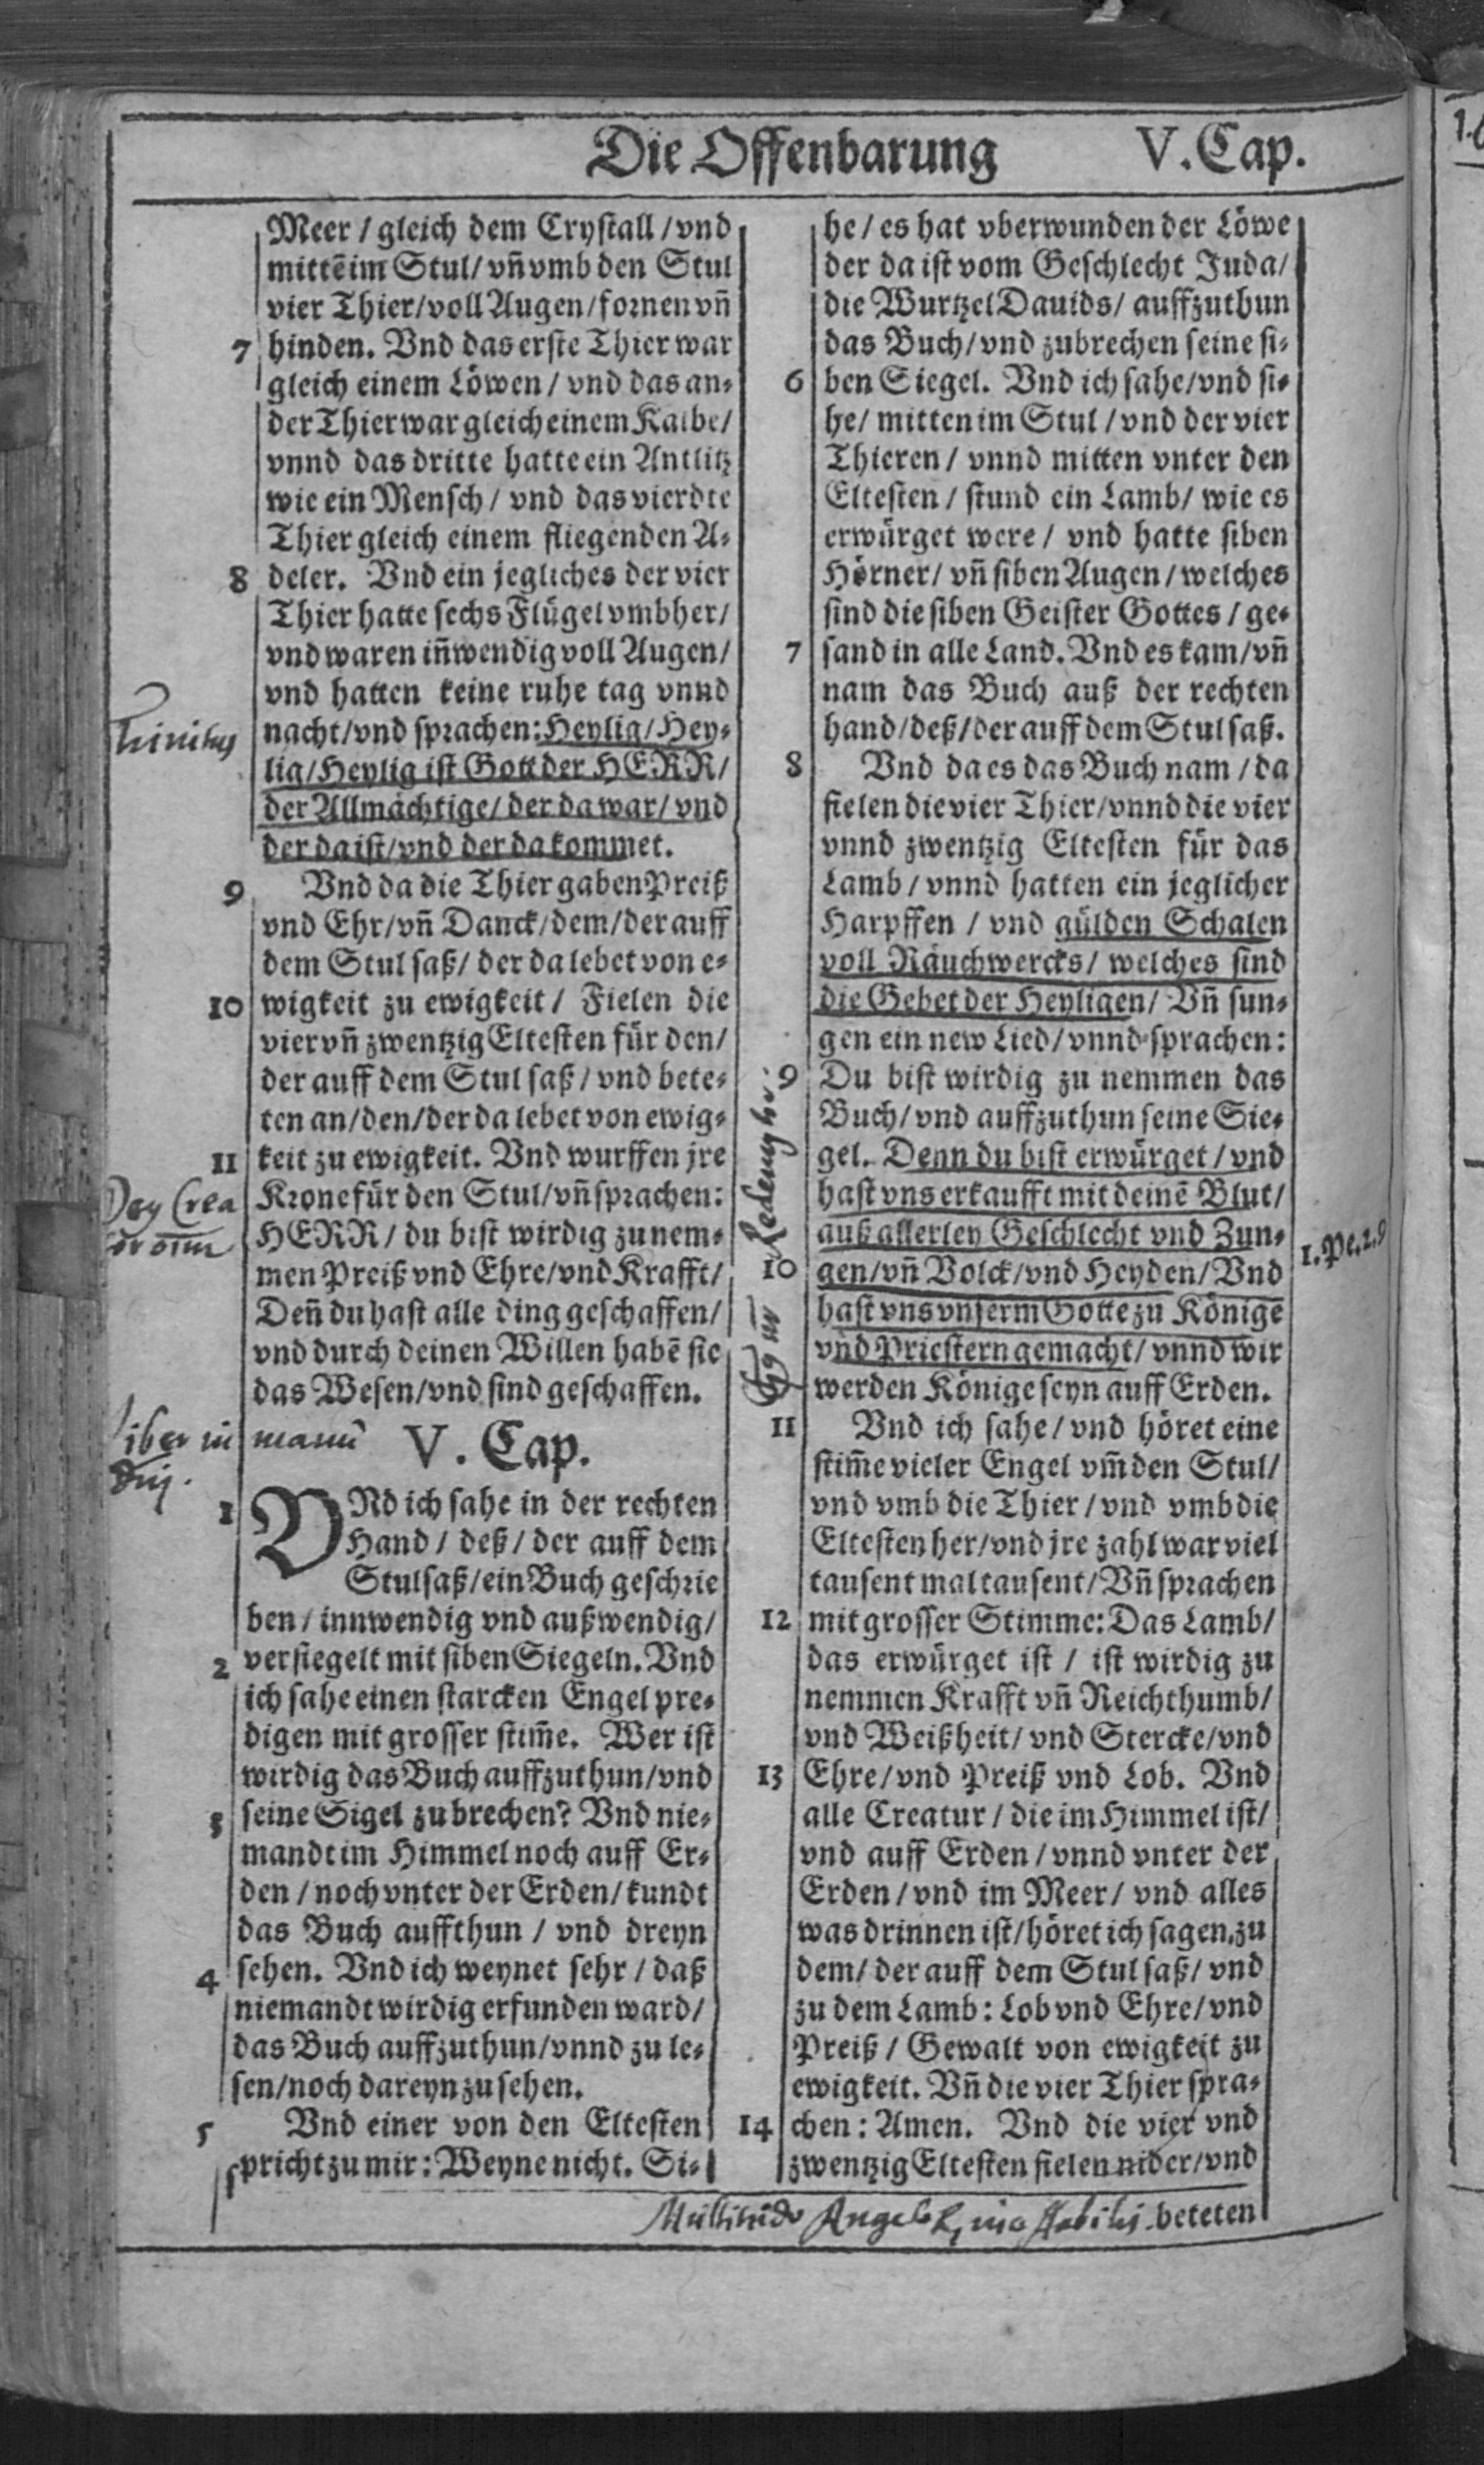 Die Offenbarung V. Cap.
Meer / gleich dem Crystall / vnd
mittē im Stul / vñ vmb den Stul
vier Thier / voll Augen / fornen vñ
7 hinden. Vnd das erste Thier war
gleich einem Löwen / vnd das an-
der Thier war gleich einem Kalbe /
vnnd das dritte hatte ein Antlitz
wie ein Mensch / vnd das vierdte
Thier gleich einem fliegenden A-
8 deler. Vnd ein jegliches der vier
Thier hatte sechs Flügel vmbher /
vnd waren iñwendig voll Augen /
vnd hatten keine ruhe tag vnnd
nacht / vnd sprachen: Heylig / Hey-
lig / Heylig ist Gott der HERR /
der Allmächtige / der da war / vnd
der da ist / vnd der da kommet.
9 Vnd da die Thier gaben Preiß
vnd Ehr / vñ Danck / dem / der auff
dem Stul saß / der da lebet von e-
10 wigkeit zu ewigkeit / Fielen die
vier vñ zwentzig Eltesten für den /
der auff dem Stul saß / vnd bete-
ten an / den / der da lebet von ewig-
11 keit zu ewigkeit. Vnd wurffen jre
Krone für den Stul / vñ sprachen:
HERR / du bist wirdig zu nem-
men Preiß vnd Ehre / vnd Krafft /
Deñ du hast alle ding geschaffen /
vnd durch deinen Willen habē sie
das Wesen / vnd sind geschaffen.
V. Cap.
1 VNd ich sahe in der rechten
Hand / deß / der auff dem
Stul saß / ein Buch geschrie
ben / innwendig vnd außwendig /
2 versiegelt mit siben Siegeln. Vnd
ich sahe einen starcken Engel pre-
digen mit grosser stim̃e. Wer ist
wirdig das Buch auffzuthun / vnd
3 seine Sigel zu brechen? Vnd nie-
mandt im Himmel noch auff Er-
den / noch vnter der Erden / kundt
das Buch auffthun / vnd dreyn
4 sehen. Vnd ich weynet sehr / daß
niemandt wirdig erfunden ward /
das Buch auffzuthun / vnnd zu le-
sen / noch dareyn zu sehen.
5 Vnd einer von den Eltesten
spricht zu mir: Weyne nicht. Si-
he / es hat vberwunden der Löwe
der da ist vom Geschlecht Juda /
die Wurtzel Dauids / auffzuthun
das Buch / vnd zubrechen seine si-
6 ben Siegel. Vnd ich sahe / vnd si-
he / mitten im Stul / vnd der vier
Thieren / vnnd mitten vnter den
Eltesten / stund ein Lamb / wie es
erwürget were / vnd hatte siben
Hörner / vñ siben Augen / welches
sind die siben Geister Gottes / ge-
7 sand in alle Land. Vnd es kam / vñ
nam das Buch auß der rechten
hand / deß / der auff dem Stul saß.
8 Vnd da es das Buch nam / da
fielen die vier Thier / vnnd die vier
vnnd zwentzig Eltesten für das
Lamb / vnnd hatten ein jeglicher
Harpffen / vnd gülden Schalen
voll Räuchwercks / welches sind
die Gebet der Heyligen / Vñ sun-
gen ein new Lied / vnnd sprachen:
9 Du bist wirdig zu nemmen das
Buch / vnd auffzuthun seine Sie-
gel. Denn du bist erwürget / vnd
hast vns erkaufft mit deinē Blut /
auß allerley Geschlecht vnd Zun-
10 gen / vñ Volck / vnd Heyden / Vnd
hast vns vnserm Gotte zu Königē
vnd Priestern gemacht / vnnd wir
werden Könige seyn auff Erden.
11 Vnd ich sahe / vnd höret eine
stim̃e vieler Engel vm̃ den Stul /
vnd vmb die Thier / vnd vmb die
Eltesten her / vnd jre zahl war viel
tausent mal tausent / Vñ sprachen
12 mit grosser Stimme: Das Lamb /
das erwürget ist / ist wirdig zu
nemmen Krafft vñ Reichthumb /
vnd Weißheit / vnd Stercke / vnd
13 Ehre / vnd Preiß vnd Lob. Vnd
alle Creatur / die im Himmel ist /
vnd auff Erden / vnnd vnter der
Erden / vnd im Meer / vnd alles
was drinnen ist / höret ich sagen, zu
dem / der auff dem Stul saß / vnd
zu dem Lamb: Lob vnd Ehre / vnd
Preiß / Gewalt von ewigkeit zu
ewigkeit. Vñ die vier Thier spra-
14 chen: Amen. Vnd die vier vnd
zwentzig Eltesten fielen nider / vnd
beteten
1. Pe. 2. 9